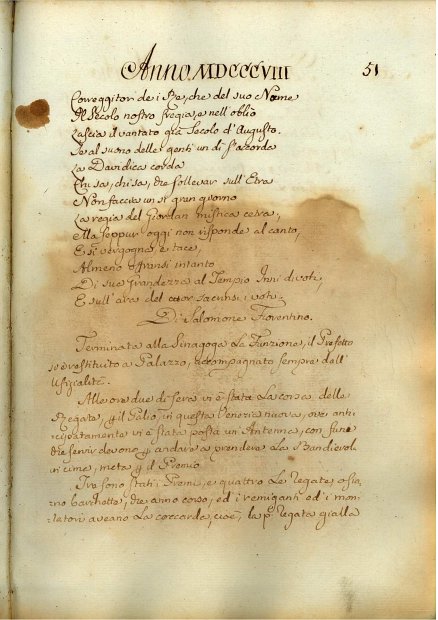 Anno MDCCCVIII 51
Correggitor dei Re, che del suo Nome
Il Secolo nostro fregia, e nell'oblio
Lascia il vantato già Secolo d'Augusto.
Se al suono delle genti un dì s'accorda
La Davidica corda
Chi sa, chi sa, che sollevar sull'Etra
Non faccia un sì gran giorno
La regia del Giordan mistica cetra,
Ella seppur oggi non risponde al canto,
E si vergogna, e tace,
Almeno offransi intanto
Di sua grandezza al Tempio Inni divoti,
E sull'ara del cuor sacrinsi i voti.
Di Salomone Fiorentino.
Terminata alla Sinagoga La Funzione, il Prefetto
si è restituito a Palazzo, accompagnato sempre dall'
Ufizialità.
Alle ore due di sera vi è stata La corsa delle
Regate, il Palio, in questa Venezia nuova, ove anti
cipatamente vi è stata posta un'Antenna, con fune
che servir devono andare a prendere La Bandierola
in cima, meta il Premio
Tre sono stati i Premi, e quattro Le regate o sia
no barchette, che anno corso, ed i remiganti ed i mon
tatori aveano La coccarda, cioè, la p.ª regata gialla